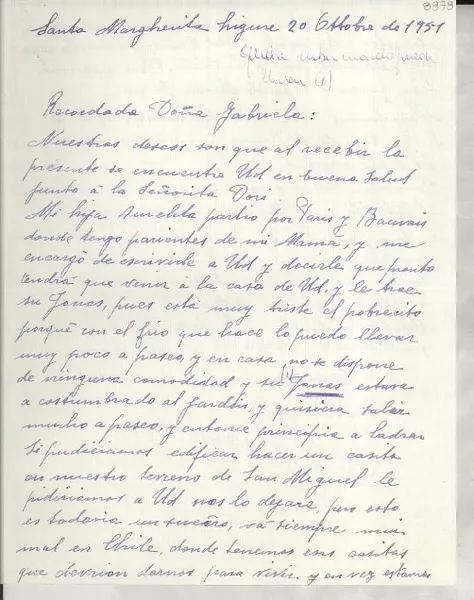 8878
Santa Margherita Ligure 20 Ottobre de 1951
Recordada Doña Gabriela:
Nuestros deseos son que al recebir la
presente se encuentra Ud en buena salud
junto á la Señorita Dori
Mi hija Aurelita partío por Paris y Beauvais
donde tengo parientes de mi Mama, y me
encargó de escrivirle a Ud y decirle que pronto
tendrá que venir á la casa de Ud, y le trae
su Jonas, pues está muy triste el pobrecito
porqué con el frio que hace lo puedo llevar
muy poco a paseo, y en casa no se dispone
de ninguna comodidad y su Jonas estava
acostumbrado al jardin, y quisiera salir
mucho a paseo, y entonce principia a ladrar
Si pudieramos edificar hacer un casita
en nuestro terreno de San Miguel le
pidiriamos a Ud nos lo dejara, pero esto
es todavia un sueño, vá siempre mui
mal en Chile, donde tenemos esas casitas
que devrian darnos para vivir y en vez estamos